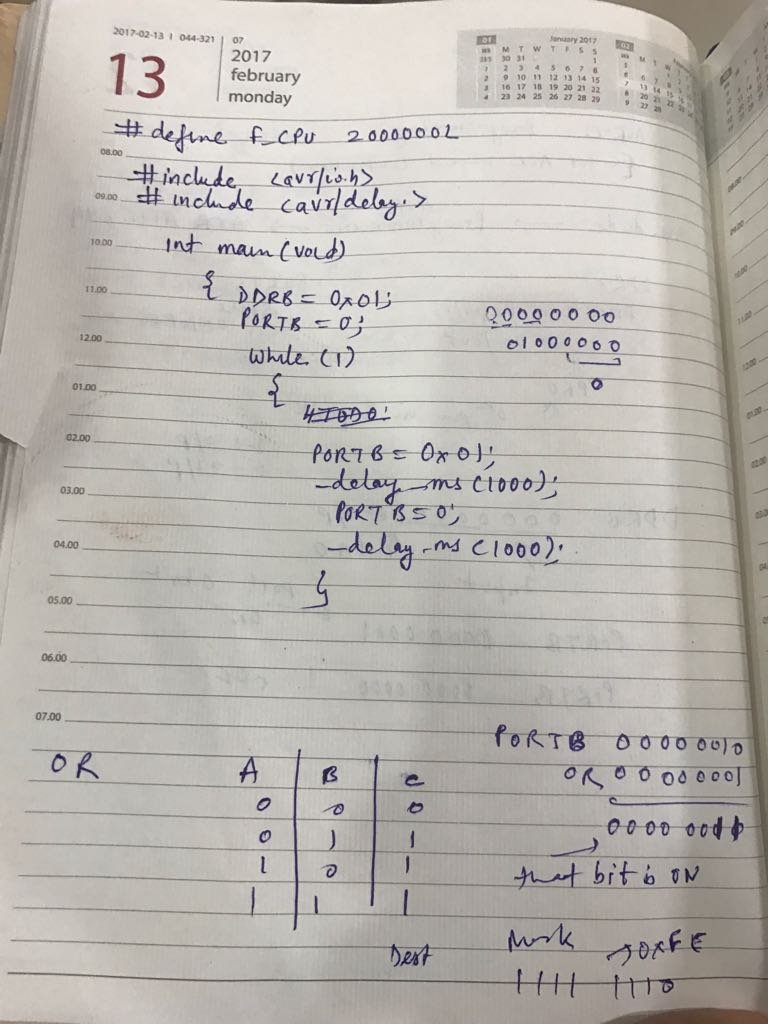 2017-02-13 | 044-321
07
13
2017
february
monday
01 January 2017
WK M T W T F S S
30 31 1
1 2 3 4 5 6 7 8
2 9 10 11 12 13 14 15
3 16 17 18 19 20 21 22
4 23 24 25 26 27 28 29
02
# define F_CPU 2000000L
08.00
#include <avr/io.h>
09.00 # include <avr/delay.>
10.00 int main (void)
11.00 { DDRB = 0x01;
PORTB = 0; 00000000
12.00 while (1) 01000000
0
01.00 {
02.00
PORTB = 0x01;
_delay_ms (1000);
03.00 PORTB = 0;
04.00 _delay_ms (1000);
}
05.00
06.00
07.00
PORTB 00000010
OR A B C OR 00000001
0 0 0
0 1 1 0000 0011
1 0 1 that bit is ON
1 1 1
Dest Mask → 0xFE
1111 1110